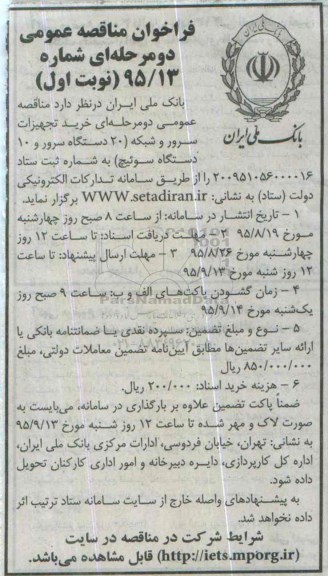 فراخوان مناقصه عمومی
دومرحله‌ای شماره
۹۵/۱۳ (نوبت اول)
بانک ملی ایران
بانک ملی ایران درنظر دارد مناقصه
عمومی دومرحله‌ای خرید تجهیزات
سرور و شبکه (۲۰ دستگاه سرور و ۱۰
دستگاه سوئیچ) به شماره ثبت ستاد
۲۰۰۹۵۱۰۵۶۰۰۰۰۱۶ را از طریق سامانه تدارکات الکترونیکی
دولت (ستاد) به نشانی: WWW.setadiran.ir برگزار نماید.
۱ – تاریخ انتشار در سامانه: از ساعت ۸ صبح روز چهارشنبه
مورخ ۹۵/۸/۱۹ ۲ – مهلت دریافت اسناد: تا ساعت ۱۲ روز
چهارشنبه مورخ ۹۵/۸/۲۶ ۳ – مهلت ارسال پیشنهاد: تا ساعت
۱۲ روز شنبه مورخ ۹۵/۹/۱۳
۴ – زمان گشودن پاکت‌های الف و ب: ساعت ۹ صبح روز
یک‌شنبه مورخ ۹۵/۹/۱۴
۵ – نوع و مبلغ تضمین: سپرده نقدی یا ضمانتنامه بانکی یا
ارائه سایر تضمین‌ها مطابق آیین‌نامه تضمین معاملات دولتی، مبلغ
۸۵۰/۰۰۰/۰۰۰ ریال
۶ – هزینه خرید اسناد: ۲۰۰/۰۰۰ ریال.
ضمناً پاکت تضمین علاوه بر بارگذاری در سامانه، می‌بایست به
صورت لاک و مهر شده تا ساعت ۱۲ روز شنبه مورخ ۹۵/۹/۱۳
به نشانی: تهران، خیابان فردوسی، ادارات مرکزی بانک ملی ایران،
اداره کل کارپردازی، دایره دبیرخانه و امور اداری کارکنان تحویل
داده شود.
به پیشنهادهای واصله خارج از سایت سامانه ستاد ترتیب اثر
داده نخواهد شد.
شرایط شرکت در مناقصه در سایت
(http://iets.mporg.ir) قابل مشاهده می‌باشد.